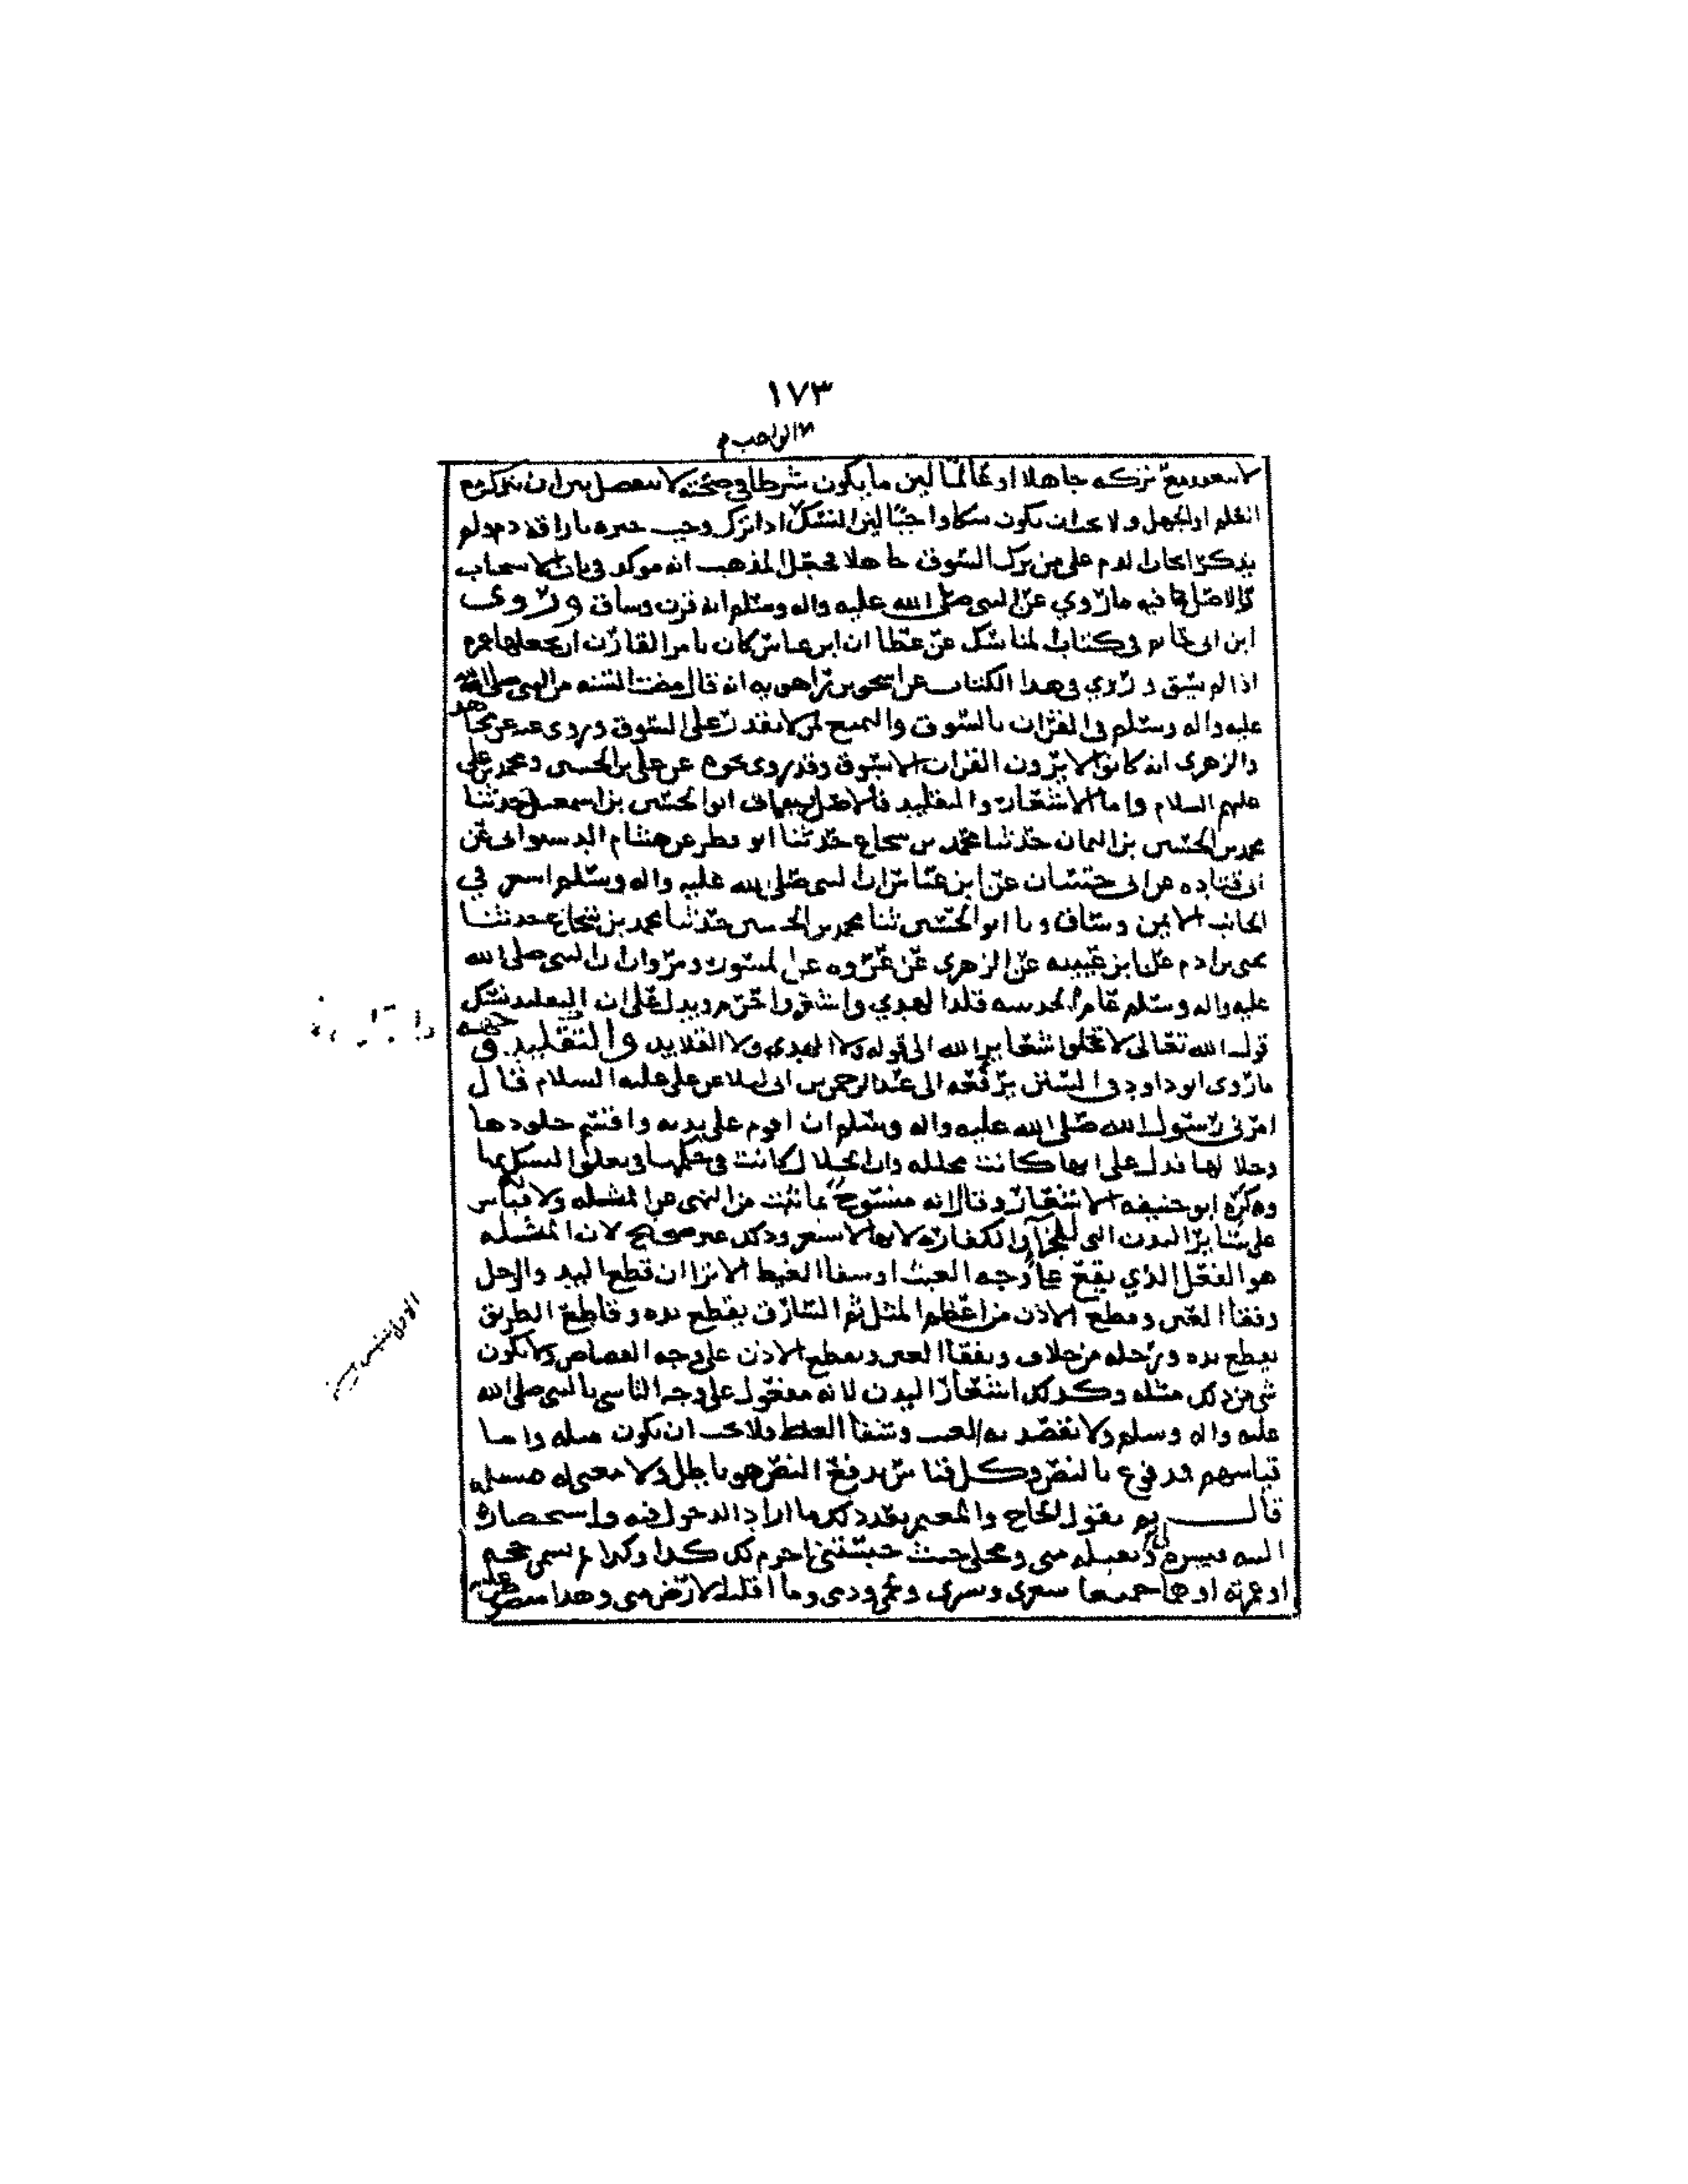 ١٧٣
الواجب
لا ينعقد مع تركه جاهلا او عالما لين ما يكون شرطا في صحته لا ينفصل بين ان يترك مع
العلم او الجهل ولا يجب ان يكون نسكا واجبا لين النسك اذا ترك وجب جبره باراقة دم ولم
يذكر ايجاب الدم على من ترك السوق جاهلا فجعل المذهب انه موكد في باب الاستحباب
والاصل فيه ما روي عن النبي صلى الله عليه واله وسلم انه قرن وساق وروى
ابن ابي حاتم في كتاب المناسك عن عطا ان ابن عباس كان يامر القارن ان يجعلها عمرة
اذا لم يسق وروي في هذا الكتاب عن اسحق بن راهويه انه قال مضت السنه من النبي صلى الله
عليه واله وسلم في القران بالسوق والتمتع لمن لا يقدر على السوق وروى عنه عن مجاهد
والزهري انه كانوا لا يرون القران الا بسوق وقد روى نحوه عن علي بن الحسين ومحمد بن علي
عليهم السلام واما الاشعار والتقليد فالاصل فيهما ابو الحسين بن اسمعيل حدثنا
محمد بن الحسين بن اليمان حدثنا محمد بن شجاع حدثنا ابو قطن عن هشام الدستوائي عن
قتاده عن ابي حسان عن ابن عباس ان النبي صلى الله عليه واله وسلم اشعر في
الجانب الايمن وساق ونا ابو الحسين ثنا محمد بن الحسين حدثنا محمد بن شجاع حدثنا
يحيى بن ادم عن ابن عيينه عن الزهري عن عروه عن المسور ومروان ان النبي صلى الله
عليه واله وسلم عام الحديبيه قلد الهدي واشعر واحرم ويدل على ان التقليد نسك
قول الله تعالى لا تحلوا شعاير الله الى قوله ولا الهدي ولا القلايد والتقليد
ما روى ابو داود في السنن يرفعه الى عبد الرحمن بن ابي ليلا عن علي عليه السلام قال
امرني رسول الله صلى الله عليه واله وسلم ان اقوم على بدنه واقسم جلودها
وجلالها فدل على انها كانت مجلله وان الجلال كانت في حكمها في تعلق النسك بها
وكره ابو حنيفه الاشعار وقال انه منسوخ بما ثبت من النهي عن المثله ولا قياس
على سائر البدن التي للجزا والكفارة لانها لا تشعر وذلك غير صحيح لان المثله
هو الفعل الذي يقع على وجه العبث او شفا الغيظ الا ترا ان قطع اليد والرجل
وفقأ العين وقطع الاذن من اعظم المثل ثم السارق يقطع يده وقاطع الطريق
يقطع يده ورجله من خلاف ويفقأ العين ويقطع الاذن على وجه القصاص ولا يكون
شي من ذلك مثله وكذلك اشعار البدن لانه مفعول على وجه التاسي بالنبي صلى الله
عليه واله وسلم ولا يقصد به العبث وشفا الغيظ فلا يجب ان يكون مثله واما
قياسهم مدفوع بالنص وكل قياس يدفع النص هو باطل ولا معنى له مسله
قال ثم يقول الحاج والمعتمر بعد ذكر ما اراد الدخول فيه واستحضار
النيه فيسره لي وتقبله مني ومحلي حيث حبستني احرم لك كذا وكذا ثم يسمي حجه
او عمرته او هما جميعا شعري وبشري ولحمي ودمي وما اقلت الارض مني وهذا منصوص عليه